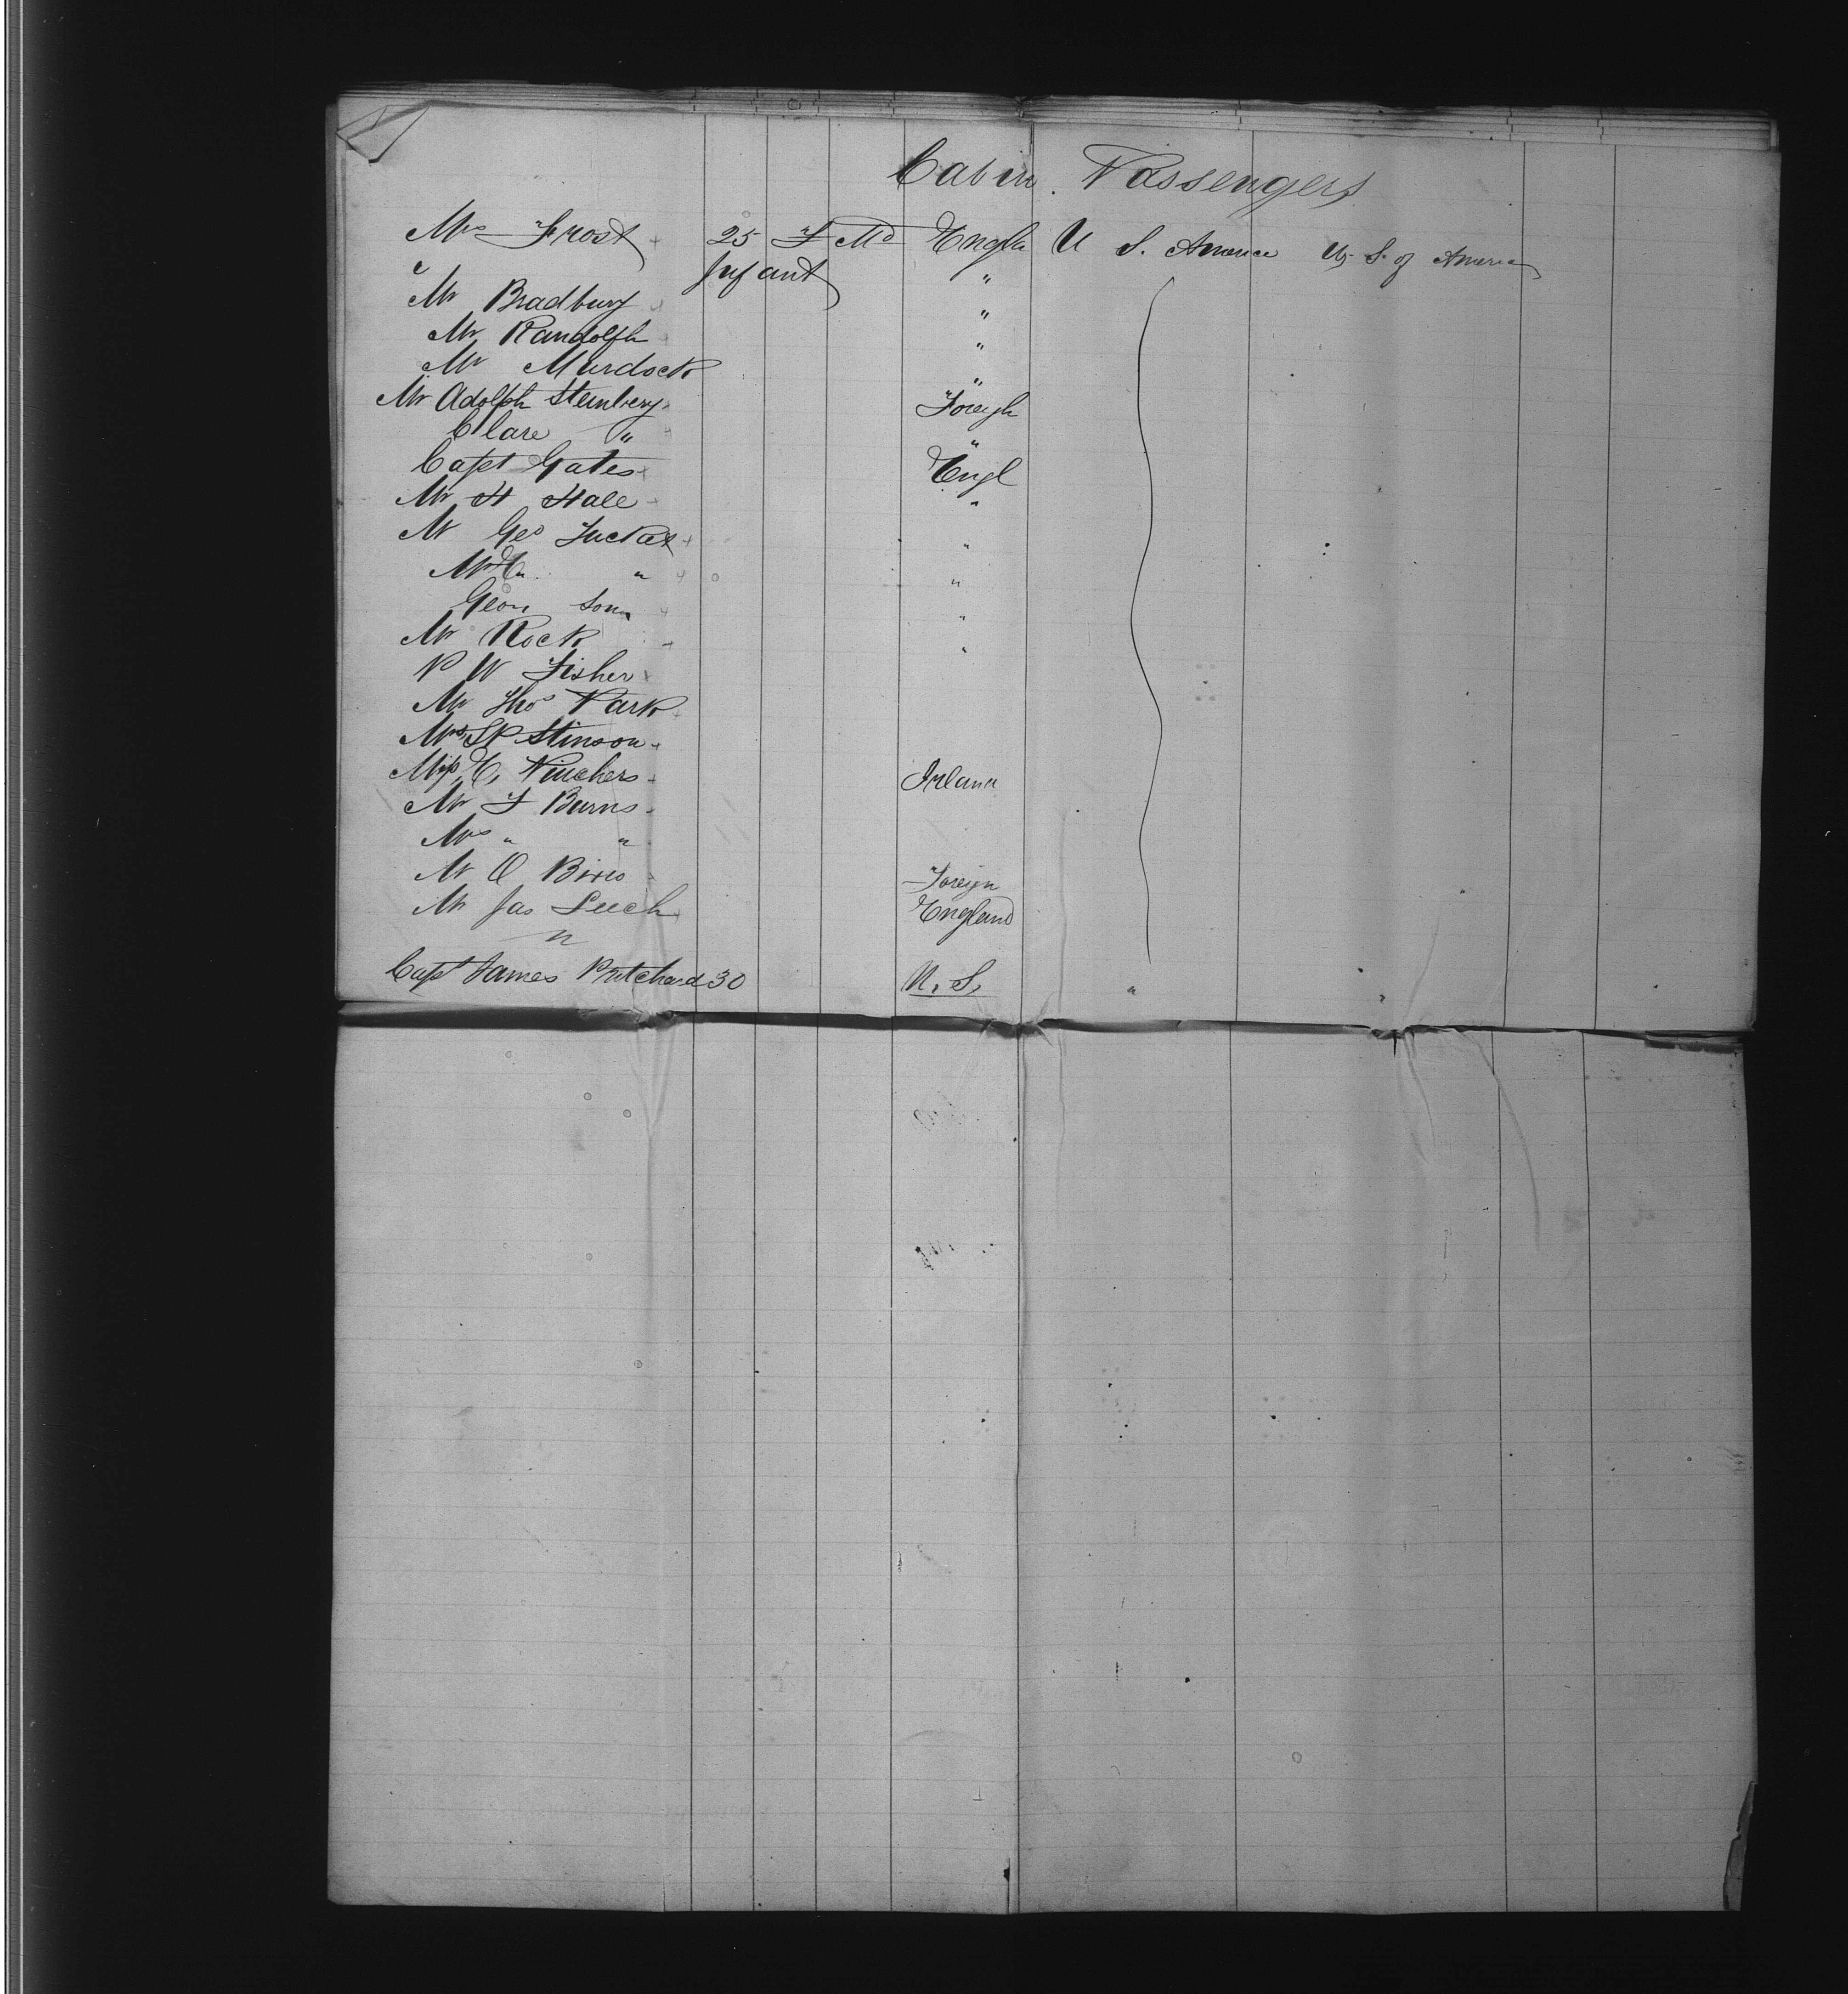 Cabin Passengers
Mrs Frost 25 F Md Engla U S. America U. S. of America
" Infant "
Mr Bradbury "
Mr Randolph "
Mr Murdock "
Mr Adolph Steinberg Foreign
Clare " "
Capt Gates Engl
Mr H Hale "
Mr Geo "
" "
Geo son "
Mr Rock "
P W Fisher
Mr Thos Park
Mrs Stinson
Miss E, Pinchers Irland
Mr F Burns
Mrs " "
Mr O Foreign
Mr Jas Leech England
"
Capt James Pritchard 30 U. S. " "